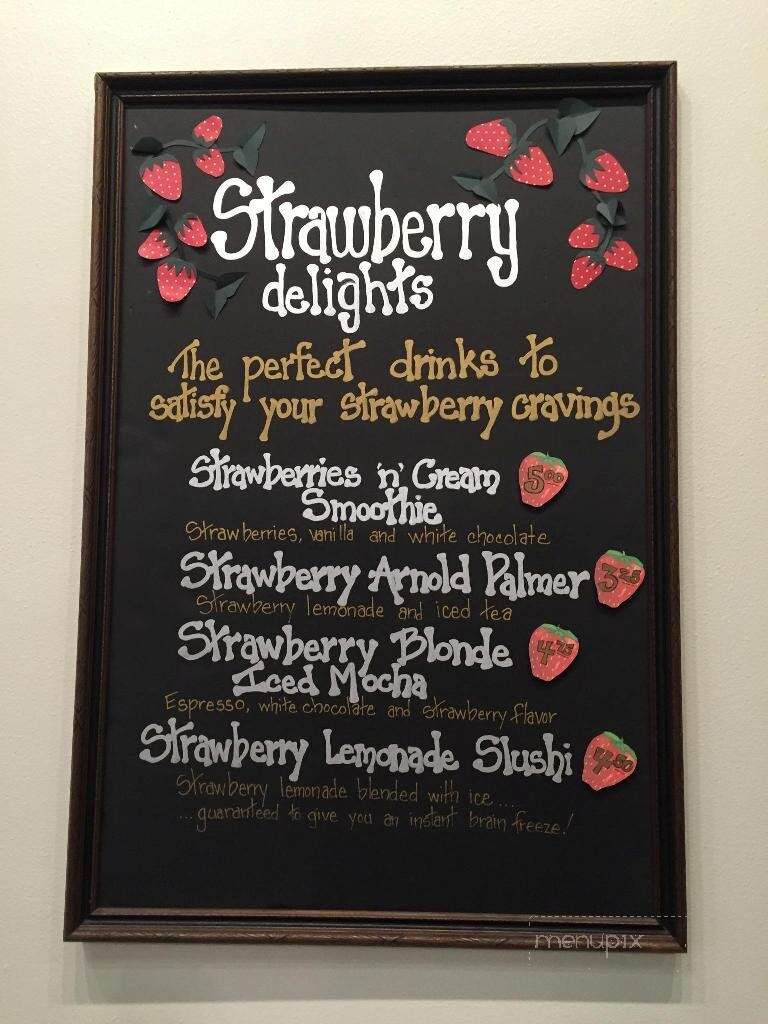 Strawberry
delights
The perfect drinks to
satisfy your strawberry cravings
Strawberries 'n' Cream 5.00
Smoothie
Strawberries, vanilla and white chocolate
Strawberry Arnold Palmer 3.25
Strawberry lemonade and iced tea
Strawberry Blonde 4.75
Iced Mocha
Espresso, white chocolate and strawberry flavor
Strawberry Lemonade Slushi 4.50
Strawberry lemonade blended with ice...
...guaranteed to give you an instant brain freeze!
menupix